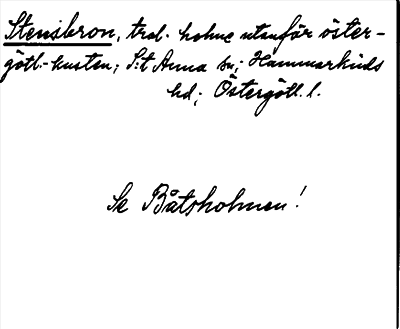 Stensbron, trad. holme utanför öster-
götl.-kusten; S:t Anna sn; Hammarkinds
hd; Östergötl. l.
Se Båtsholmen!